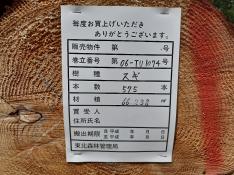 毎度お買上げいただき
ありがとうございます。
販売物件 第 号
巻立番号 第 号
樹種 スギ
本数 575 本
材積 m³
買受人
住所氏名
搬出期限 自 平成 年 月 日
至 平成 年 月 日
東北森林管理局